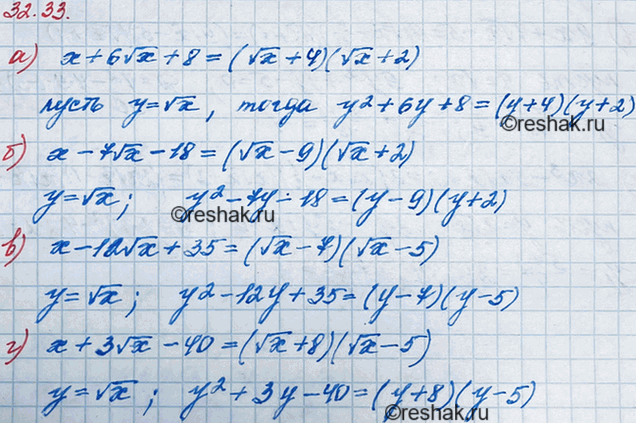 32.33.
а) x+6√x+8=(√x+4)(√x+2)
пусть y=√x, тогда y²+6y+8=(y+4)(y+2)
©reshak.ru
б) x-7√x-18=(√x-9)(√x+2)
y=√x; y²-7y-18=(y-9)(y+2)
©reshak.ru
в) x-12√x+35=(√x-7)(√x-5)
y=√x; y²-12y+35=(y-7)(y-5)
г) x+3√x-40=(√x+8)(√x-5)
y=√x; y²+3y-40=(y+8)(y-5)
©reshak.ru